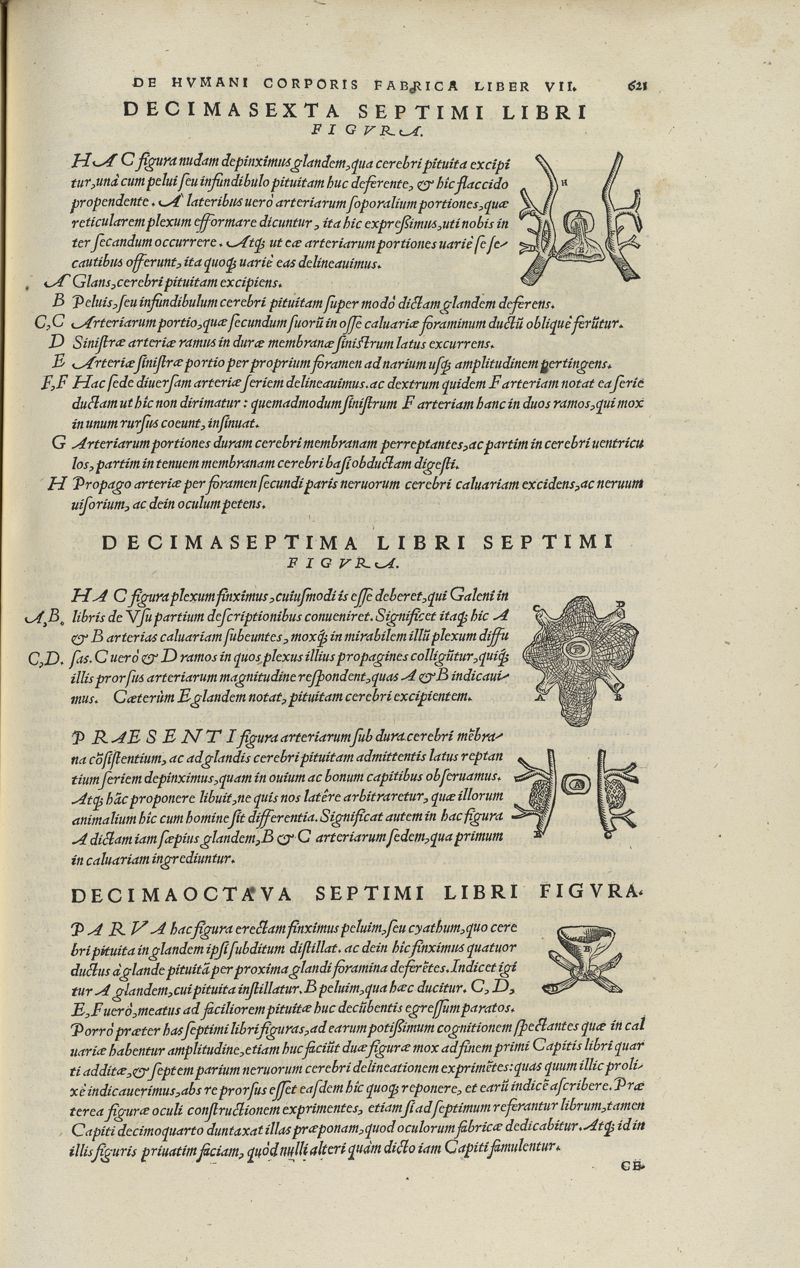 DE HVMANI CORPORIS FABRICA LIBER VII. 621
DECIMASEXTA SEPTIMI LIBRI
FIGVRA.
HAC figura nudam depinximus glandem, qua cerebri pituita excipi
tur, unà cum pelui seu infundibulo pituitam huc deferente, & hic flaccido
propendente. A lateribus uerò arteriarum soporalium portiones, quæ
reticularem plexum efformare dicuntur, ita hic expreßimus, uti nobis in
ter secandum occurrere. Atq; ut eæ arteriarum portiones uariè se se-
cautibus offerunt, ita quoq; uariè eas delineauimus.
A Glans, cerebri pituitam excipiens.
B Peluis, seu infundibulum cerebri pituitam super modò dictam glandem deferens.
C, C Arteriarum portio, quæ secundum suorũ in osse caluariæ foraminum ductũ obliquè ferũtur.
D Sinistræ arteriæ ramus in duræ membranæ sinistrum latus excurrens.
E Arteriæ sinistræ portio per proprium foramen ad narium usq; amplitudinem pertingens.
F, F Hac sede diuersam arteriæ seriem delineauimus. ac dextrum quidem F arteriam notat ea serie
ductam ut hic non dirimatur: quemadmodum sinistrum F arteriam hanc in duos ramos, qui mox
in unum rursus coeunt, insinuat.
G Arteriarum portiones duram cerebri membranam perreptantes, ac partim in cerebri uentricu
los, partim in tenuem membranam cerebri basi obductam digesti.
H Propago arteriæ per foramen secundi paris neruorum cerebri caluariam excidens, ac neruum
uisorium, ac dein oculum petens.
H
DECIMASEPTIMA LIBRI SEPTIMI
FIGVRA.
HAC figura plexum finximus, cuiusmodi is esse deberet, qui Galeni in
A, B. libris de Vsu partium descriptionibus conueniret. Significet itaq; hic A
& B arterias caluariam subeuntes, moxq; in mirabilem illũ plexum diffu
C, D. sas. C uerò & D ramos in quos plexus illius propagines colligũtur, quiq;
illis prorsus arteriarum magnitudine respondent, quas A & B indicaui-
mus. Cæterùm E glandem notat, pituitam cerebri excipientem.
C D
E
A B
PRAESENTI figura arteriarum sub dura cerebri mẽbra-
na cõsistentium, ac ad glandis cerebri pituitam admittentis latus reptan
tium seriem depinximus, quam in ouium ac boum capitibus obseruamus.
Atq; hãc proponere libuit, ne quis nos latêre arbitraretur, quæ illorum
animalium hic cum homine sit differentia. Significat autem in hac figura
A dictam iam sæpius glandem, B & C arteriarum sedem, qua primum
in caluariam ingrediuntur.
A
B C
DECIMAOCTAVA SEPTIMI LIBRI FIGVRA.
PARVA hac figura erectam finximus peluim, seu cyathum, quo cere
bri pituita in glandem ipsi subditum distillat. ac dein hic finximus quatuor
ductus à glande pituitã per proxima glandi foramina deferẽtes. Indicet igi
tur A glandem, cui pituita instillatur. B peluim, qua hæc ducitur. C, D,
E, F uerò, meatus ad faciliorem pituitæ huc decũbentis egressum paratos.
Porrò præter has septimi libri figuras, ad earum potißimum cognitionem spectantes quæ in cal
uariæ habentur amplitudine, etiam huc faciũt duæ figuræ mox ad finem primi Capitis libri quar
ti additæ, & septem parium neruorum cerebri delineationem exprimẽtes: quas quum illic proli-
xè indicauerimus, abs re prorsus esset easdem hic quoq; reponere, et earũ indicẽ ascribere. Præ
terea figuræ oculi constructionem exprimentes, etiam si ad septimum referantur librum, tamen
Capiti decimoquarto duntaxat illas præponam, quod oculorum fabricæ dedicabitur. Atq; id in
illis figuris priuatim faciam, quòd nulli alteri quàm dicto iam Capiti famulentur.
CE-